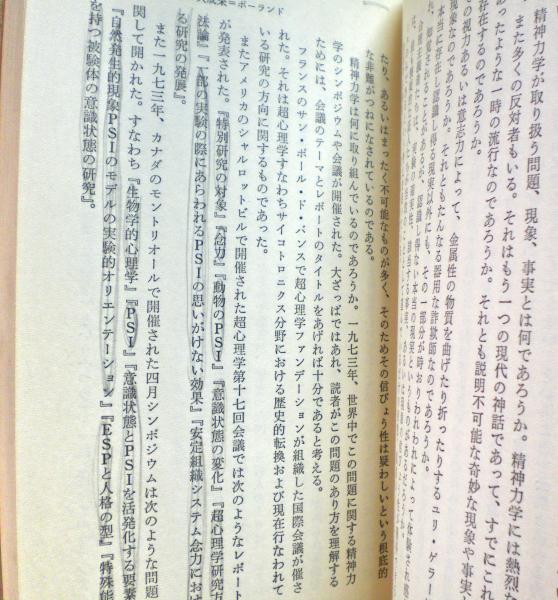 精神力学が取り扱う問題、現象、事実とは何であろうか。精神力学には熱烈な
また多くの反対者もいる。それはもう一つの現代の神話であって、すでにこれ
あったような一時の流行なのであろうか。それとも説明不可能な奇妙な現象や事実
存在するのであろうか。
の視力あるいは意志力によって、金属性の物質を曲げたり折ったりするユリ・ゲラー
現象なのであろうか、それともたんなる器用な詐欺師なのであろうか。
本当に存在し認識し得る現実以外にも、その一部分が時おりわれわれによって体験され
たり、あるいはまったく不可能なものが多く、そのためその信ぴょう性は疑わしいという根底的
な非難がつねになされているのである。
精神力学は何に取り組んでいるのであろうか。一九七三年、世界中でこの問題に関する精神力
学のシンポジウムや会議が開催された。大ざっぱではあれ、読者がこの問題のあり方を理解する
ためには、会議のテーマとレポートのタイトルをあげれば十分であると考える。
フランスのサン・ポール・ド・バンスで超心理学ファンデーションが組織した国際会議が催さ
れた。それは超心理学すなわちサイコトロニクス分野における歴史的転換および現在行なわれて
いる研究の方向に関するものであった。
またアメリカのシャルロットビルで開催された超心理学第十七回会議では次のようなレポート
が発表された。『特別研究の対象』『念力』『動物のPSI』『意識状態の変化』『超心理学研究方
法論』『一部の実験の際にあらわれるPSIの思いがけない効果』『安定組織システム念力におけ
る研究の発展』。
また一九七三年、カナダのモントリオールで開催された四月シンポジウムは次のような問題
関して開かれた。すなわち『生物学的心理学』『PSI』『意識状態とPSIを活発化する要素
『自然発生的現象PSIのモデルの実験的オリエンテーション』『ESPと人格の型』『特殊能
を持つ被験体の意識状態の研究』。